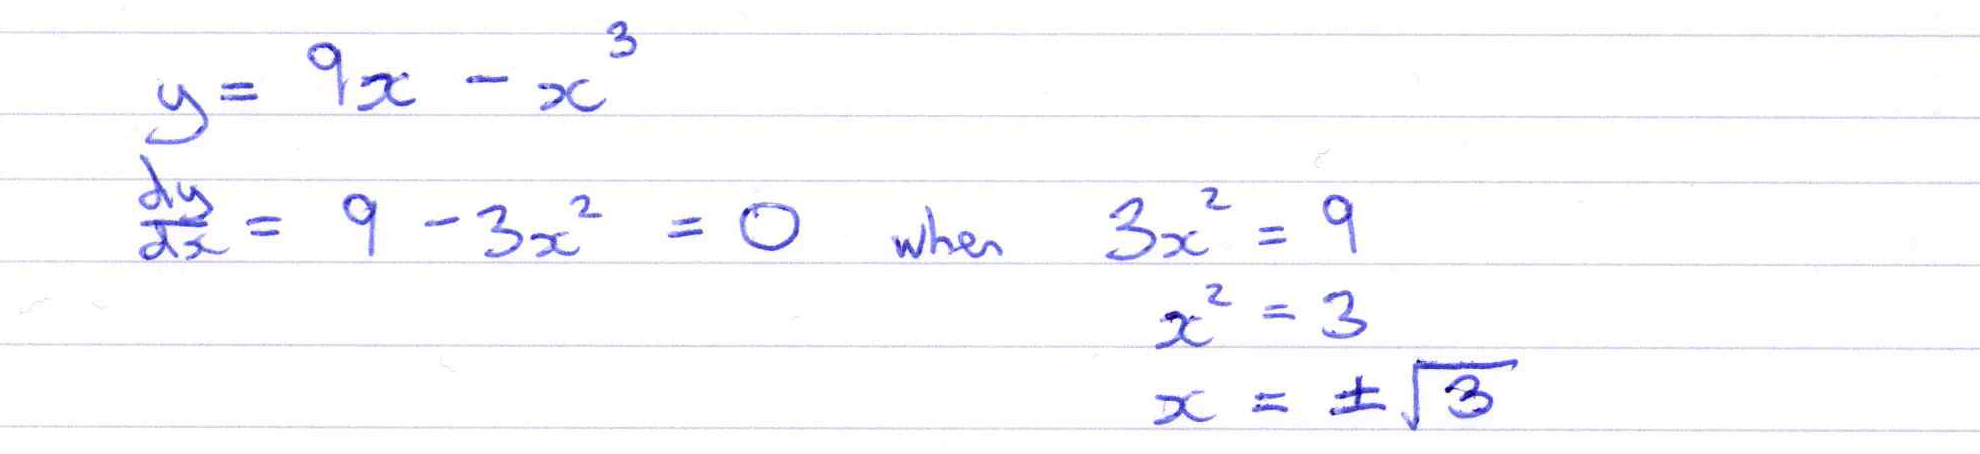 y = 9x - x³
dy/dx = 9 - 3x² = 0 when 3x² = 9
x² = 3
x = ±√3